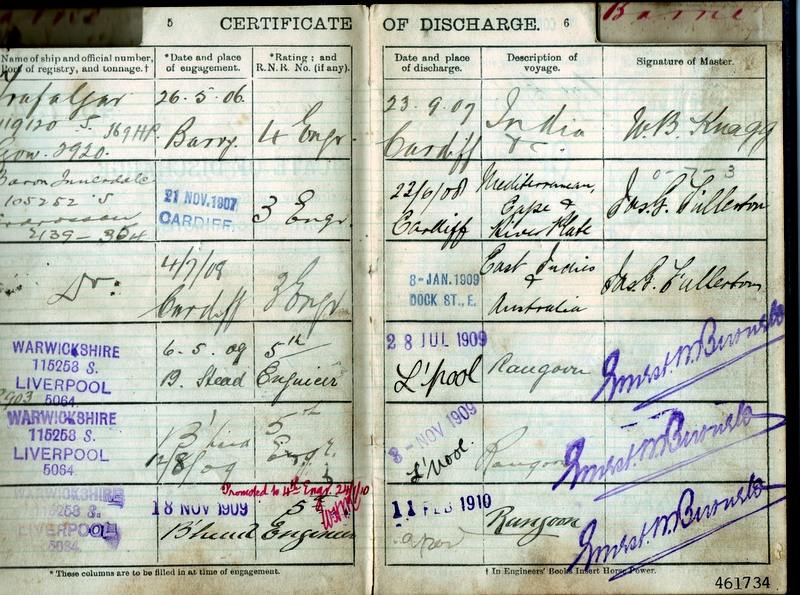 5 CERTIFICATE OF DISCHARGE. 6
Name of ship and official number, Port of registry, and tonnage.†
*Date and place of engagement.
*Rating; and R.N.R. No. (if any).
Date and place of discharge.
Description of voyage.
Signature of Master.
Trafalgar
119120 S. 369 HP
2920.
26.5.06.
Barry
4 Engr.
23.9.07
Cardiff
India
&c.
W.B. Knagg
Baron Innerdale
105252 S
Ardrossan
2139 - 354
21 NOV. 1907
CARDIFF.
3 Engr.
22/6/08
Cardiff
Mediterranean,
Cape &
River Plate
Jas. G. Fullerton
Do:
4/7/08
Cardiff
3 Engr
8-JAN. 1909
DOCK ST., E.
East Indies
&
Australia
Jas. G. Fullerton
WARWICKSHIRE
115258 S.
LIVERPOOL
5064.
6.5.09
B. Head
5th
Engineer
28 JUL 1909
L'pool
Rangoon
WARWICKSHIRE
115258 S.
LIVERPOOL
5064
B'head
12/8/09
5th
Engr.
8-NOV 1909
L'pool.
Rangoon
WARWICKSHIRE
115258 S.
LIVERPOOL
5064.
18 NOV 1909
B'head
Promoted to 4th Engr. 24/1/10
5th
Engineer
11 FEB 1910
Rangoon
* These columns are to be filled in at time of engagement.
† In Engineers' Books Insert Horse Power.
461734